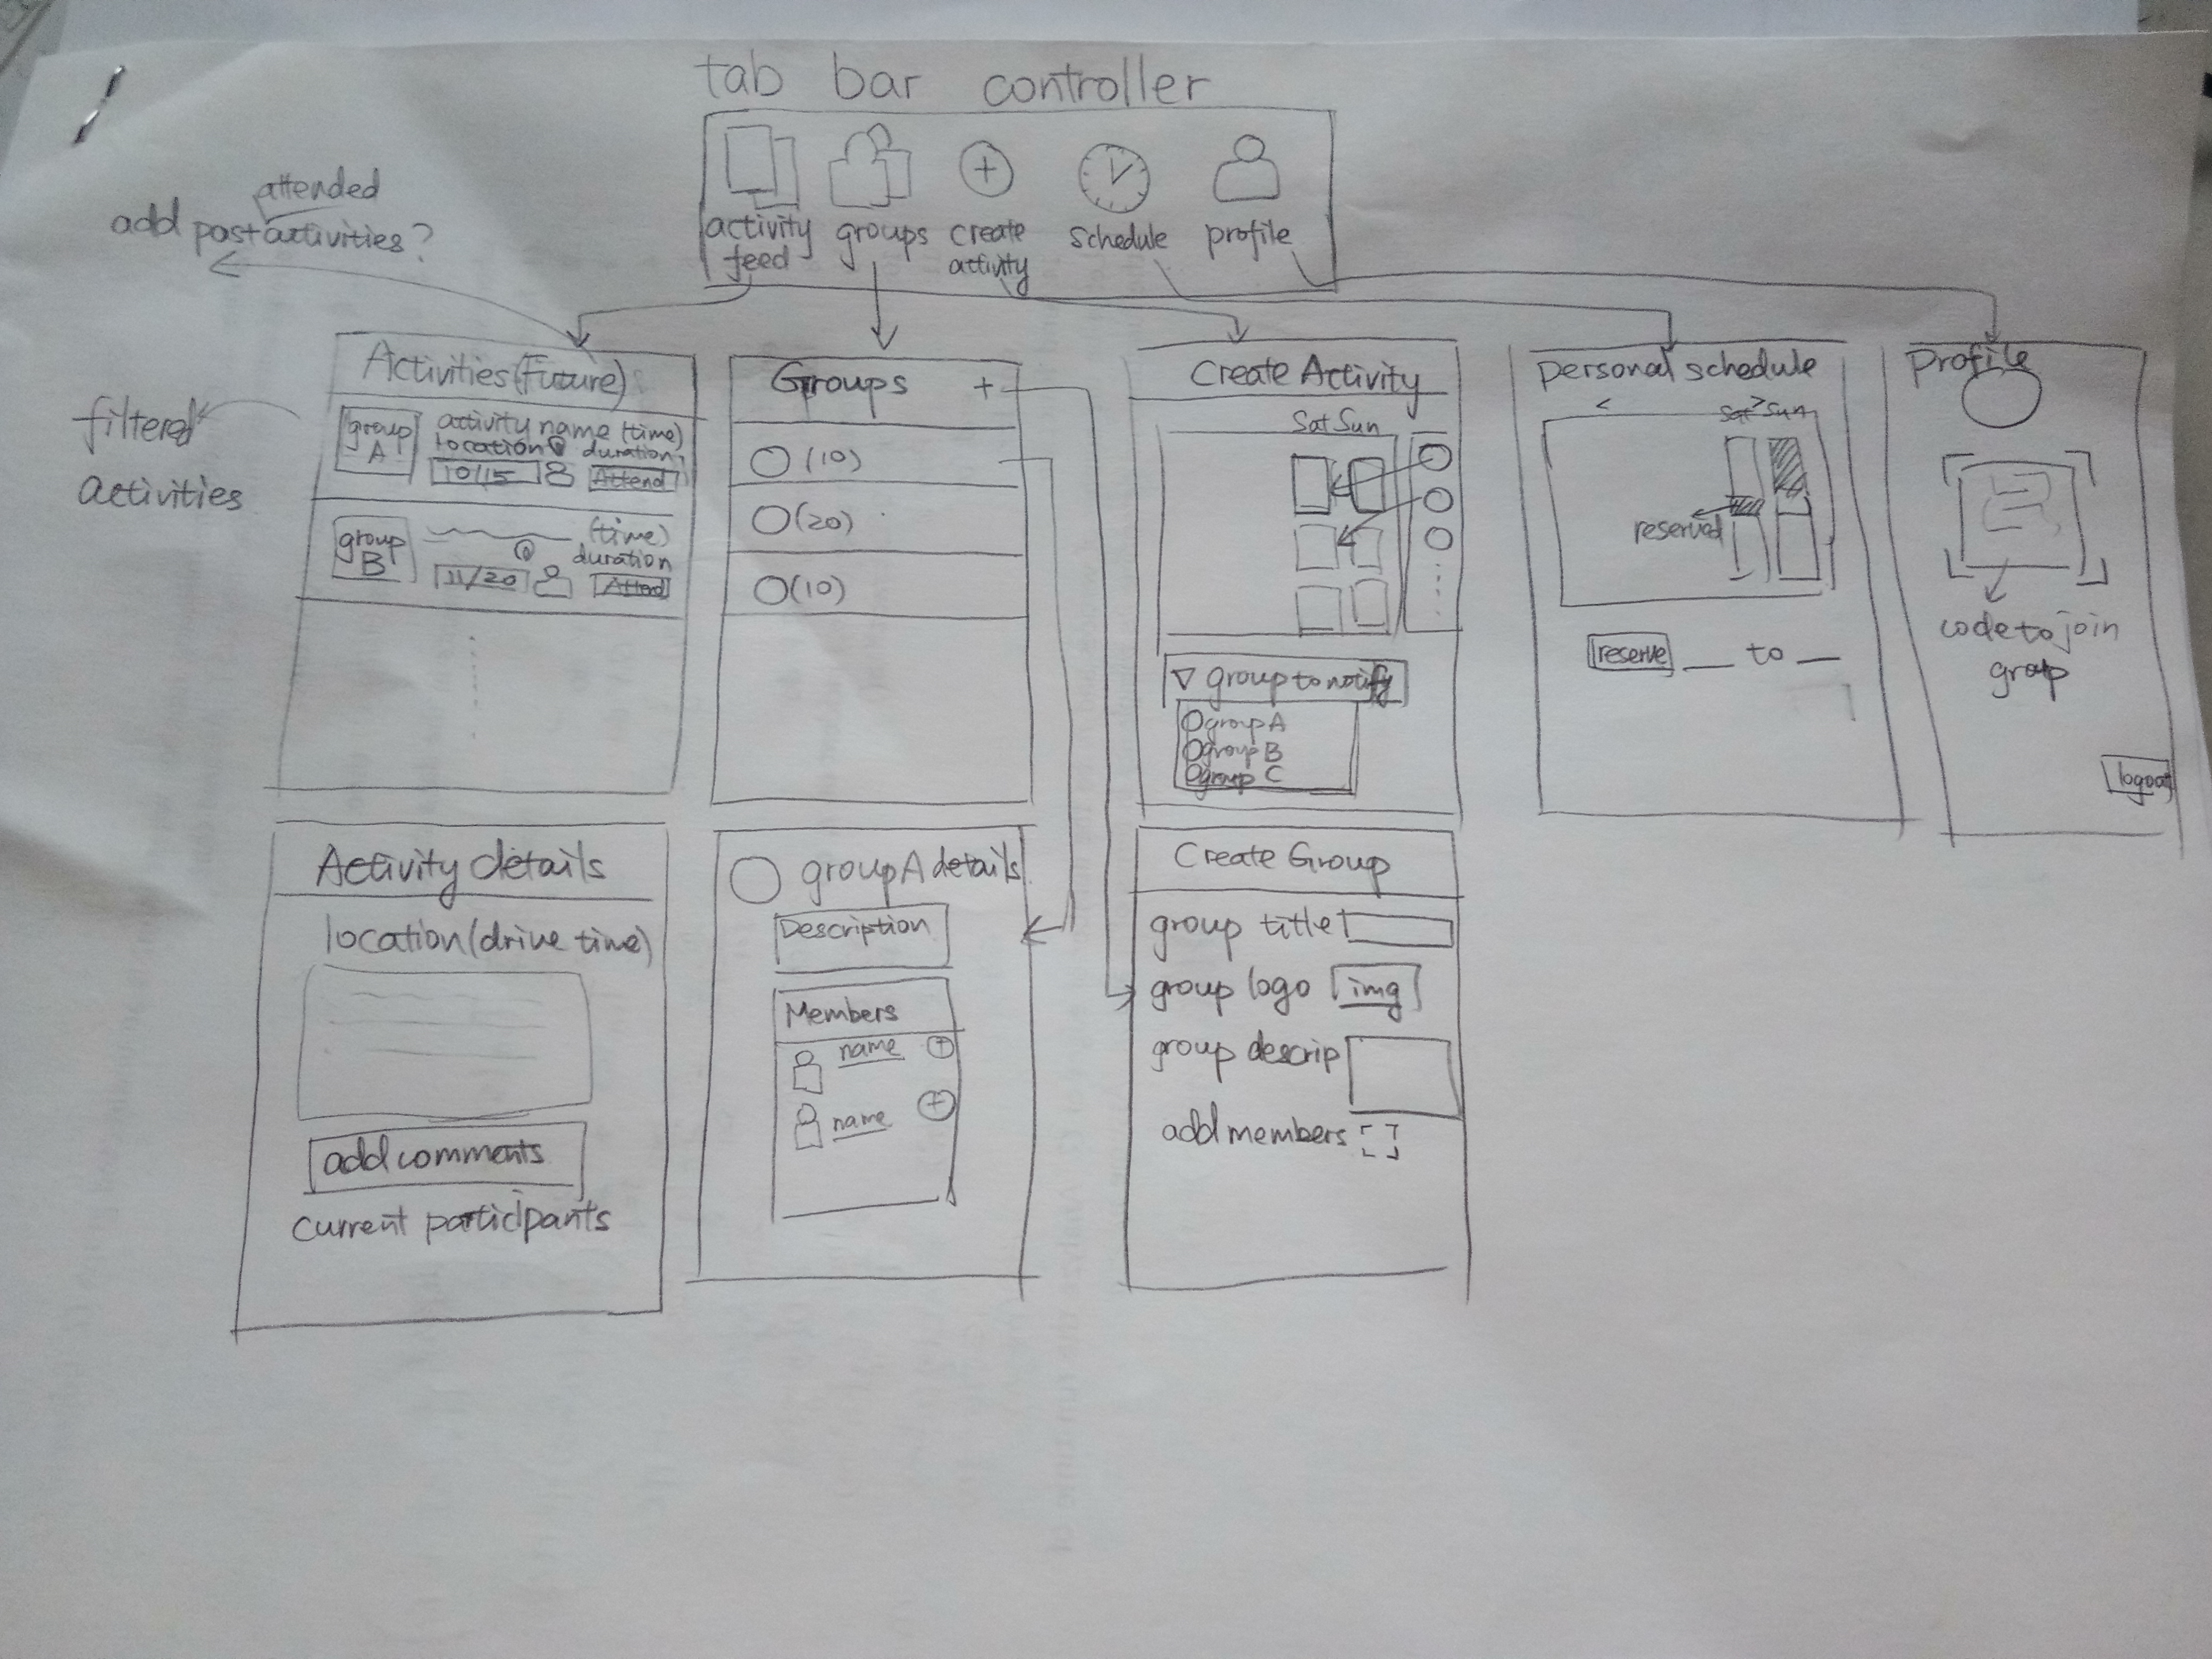 tab bar controller
activity feed
groups
create activity
schedule
profile
attended
add past activities?
filtered
activities
Activities (Future)
group A
activity name (time)
location
duration
10/15
Attend
group B
(time)
duration
11/20
Attend
Groups +
(10)
(20)
(10)
Create Activity
Sat Sun
▽ group to notify
group A
group B
group C
personal schedule
< >
Sat Sun
reserved
reserve __ to __
Profile
code to join
group
logout
Activity details
location (drive time)
add comments
current participants
group A details
Description
Members
name +
name +
Create Group
group title
group logo img
group descrip
add members